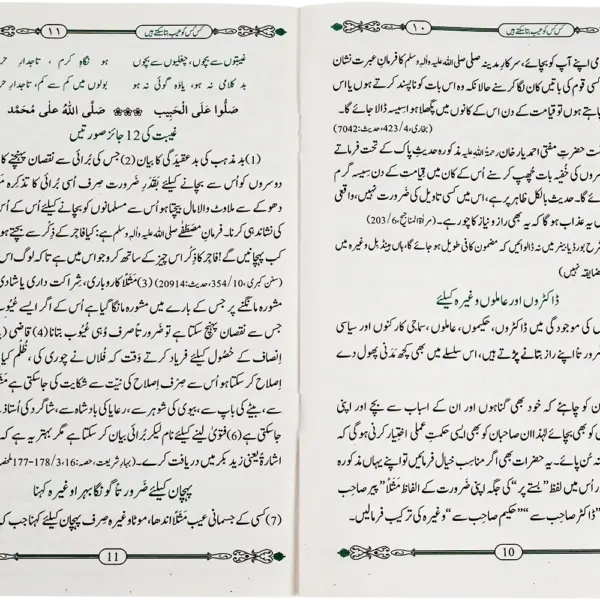 ۱۰
کس کس کو عیب بتا سکتے ہیں
می اپنے آپ کو بچائے، سرکارِ مدینہ صلی اللہ علیہ واٰلہٖ وسلم کا فرمانِ عبرت نشان
کسی قوم کی باتیں کان لگا کر سنے حالانکہ وہ اس بات کو ناپسند کرتے ہوں یا اس
چاہتے ہوں تو قیامت کے دن اس کے کانوں میں پگھلا ہوا سیسہ ڈالا جائے گا۔
(بخاری، 423/4، حدیث: 7042)
حضرتِ مفتی احمد یار خان رحمۃ اللہ علیہ مذکورہ حدیثِ پاک کے تحت فرماتے
سروں کی خُفیہ بات چھپ کر سنے اُس کے کان میں قیامت کے دن سیسہ گرم
ئے گا۔ حدیث بالکل ظاہر پر ہے، اس میں کسی تاویل کی ضرورت نہیں، واقعی
یہ عذاب ہوگا کہ یہ بھی راز و نیاز کا چور ہے۔ (مراٰۃ المناجیح، 203/6)
بورڈ یا بینر میں نہ ڈالوائیں کہ مضمون کافی طویل ہو جائے گا، ہاں ہینڈ بل وغیرہ میں
مضایقہ نہیں)
ڈاکٹروں اور عاملوں وغیرہ کیلئے
ں کی موجودگی میں ڈاکٹروں، حکیموں، عاملوں، سماجی کارکنوں اور سیاسی
ضرورتاً اپنے راز بتانے پڑتے ہیں، اس سلسلے میں بھی کچھ مَدَنی پھول دے
ان کو چاہئے کہ خود بھی گناہوں اور ان کے اسباب سے بچے اور اپنی
کو بھی بچائے لہٰذا ان صاحبان کو بھی ایسی حکمتِ عملی اختیار کرنی ہوگی کہ
نہ سُن پائے۔ یہ حضرات بھی اگر مناسب خیال فرمائیں تو اپنے یہاں مذکورہ
اور اُس میں لفظ ”بستے پر“ کی جگہ اپنی ضرورت کے الفاظ مَثَلًا ”پیر صاحِب
”ڈاکٹر صاحِب سے“ ”حکیم صاحِب سے“ وغیرہ کی ترکیب فرمالیں۔
10
۱۱
کس کس کو عیب بتا سکتے ہیں
غیبتوں سے بچوں، چغلیوں سے بچوں ہو نگاہِ کرم ، تاجدارِ حر
بد کلامی نہ ہو، یاوَہ گوئی نہ ہو بولوں میں کم سے کم، تاجدارِ حر
صَلُّوا عَلَی الْحَبِیب صَلَّی اللّٰهُ عَلٰی مُحَمَّد
غیبت کی 12 جائز صورتیں
(1) بد مذہب کی بد عقیدگی کا بیان (2) جس کی بُرائی سے نقصان پہنچنے کا
دوسروں کو اُس سے بچانے کیلئے بَقَدَرِ ضَرورت صِرف اُسی بُرائی کا تذکِرہ مَ
دھوکے سے ملاوٹ والا مال بیچتا ہو اُس سے مسلمانوں کو بچانے کیلئے اُس کے اُس
کی نشاندہی کرنا۔ فرمانِ مصطَفٰے صلی اللہ علیہ واٰلہٖ وسلم ہے: کیا فاجر کے ذِکر سے بچتے ہو
کب پہچانیں گے! فاجر کا ذِکر اُس چیز کے ساتھ کرو جو اس میں ہے تاکہ لوگ اس
(سنن کبری، 354/10، حدیث: 20914) (3) مَثَلًا کاروباری، شراکت داری یا شادی
مشورہ مانگنے پر جس کے بارے میں مشورہ مانگا گیا ہے اُس کے اگر ایسے عُیُوب
جس سے نقصان پہنچ سکتا ہے تو ضرورتاً صرف وُہی عُیُوب بتانا (4) قاضی (
اِنصاف کے حُصُول کیلئے فریاد کرتے وقت کہ فُلاں نے چوری کی ، ظُلم کیا
اِصلاح کر سکتا ہو اُس سے صِرف اِصلاح کی نیّت سے شکایت کی جاسکتی ہے مَثَ
سے، بیٹے کی باپ سے، بیوی کی شوہر سے، رعایا کی بادشاہ سے، شاگِرد کی اُستاذ
جاسکتی ہے (6) فتویٰ لینے کیلئے نام لیکر بُرائی بیان کر سکتا ہے مگر بہتر یہ ہے کہ
اشارۃً یعنی زید بکر میں دریافت کرے۔ (بہارِ شریعت، حصہ: 16، 3/177-178 ملخ
پہچان کیلئے ضَرورتاً گونگا بہرا وغیرہ کہنا
(7) کسی کے جسمانی عیب مَثَلًا اندھا، موٹا وغیرہ صِرف پہچان کیلئے کہنا جب کہ
11